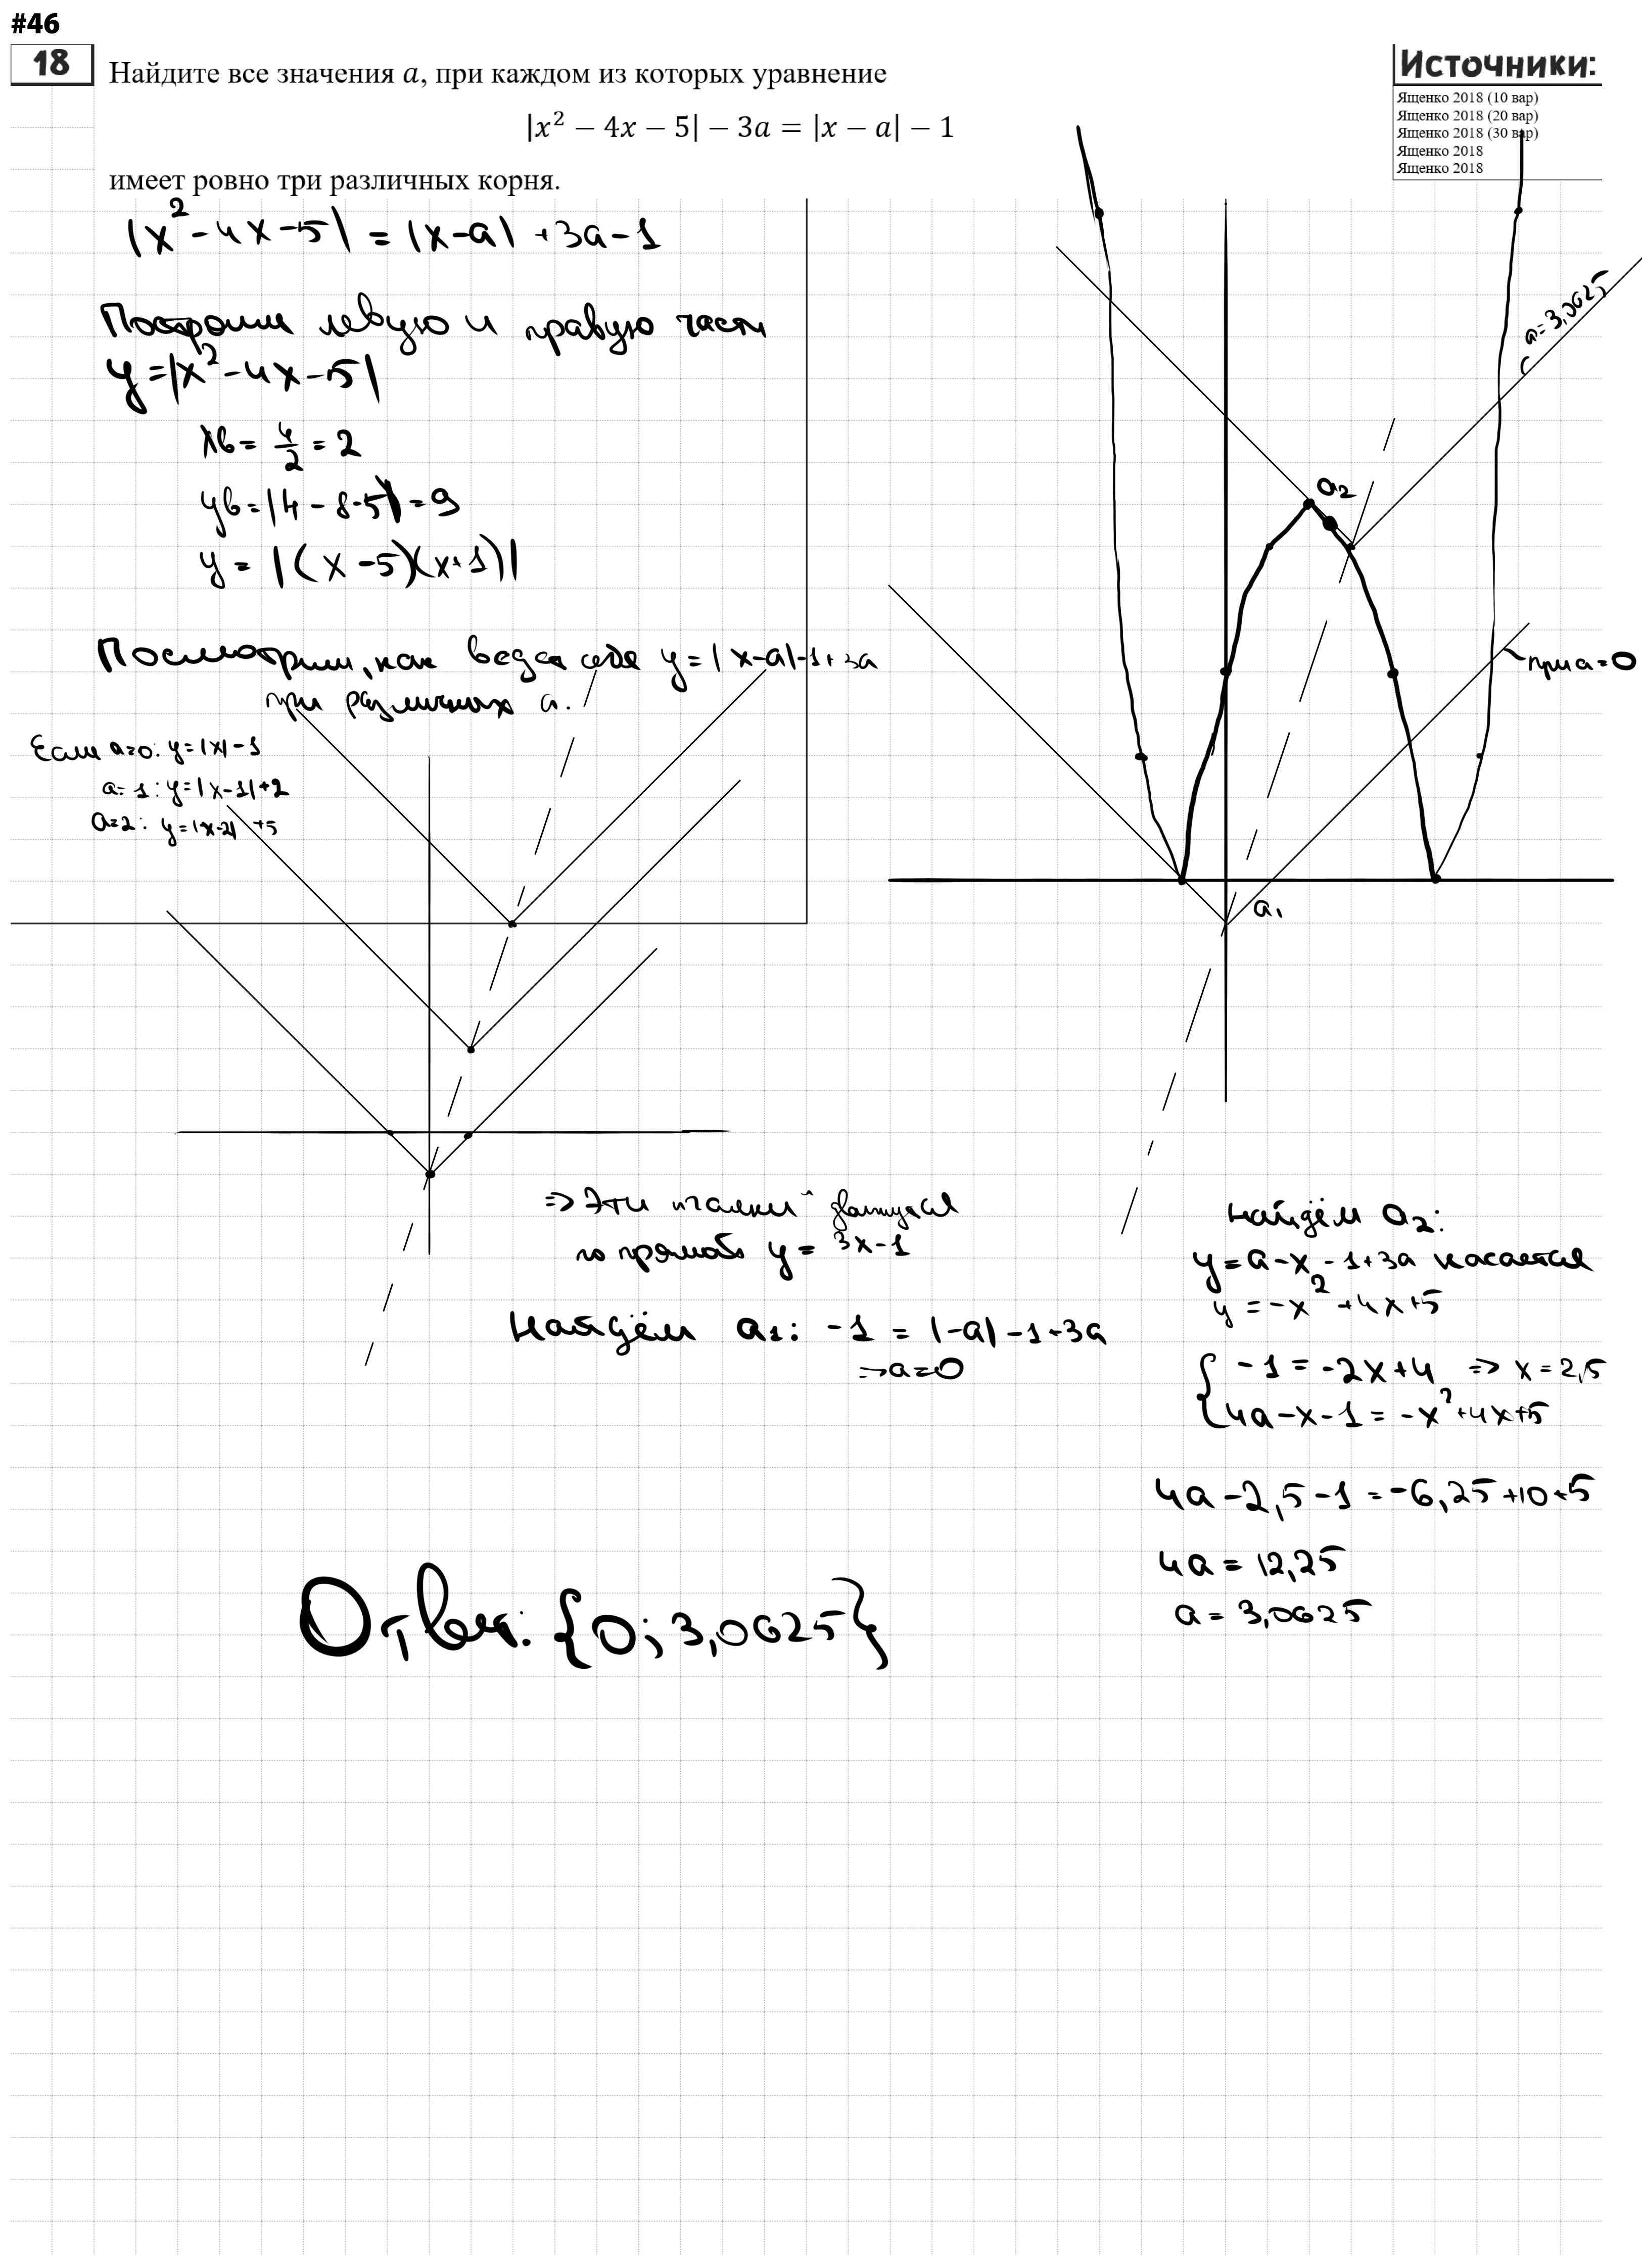 #46
18
Найдите все значения a, при каждом из которых уравнение
|x² − 4x − 5| − 3a = |x − a| − 1
имеет ровно три различных корня.
Источники:
Ященко 2018 (10 вар)
Ященко 2018 (20 вар)
Ященко 2018 (30 вар)
Ященко 2018
Ященко 2018
|x² - 4x - 5| = |x-a| + 3a - 1
Построим левую и правую части
y = |x² - 4x - 5|
xв = 4/2 = 2
yв = |4 - 8 - 5| = 9
y = |(x - 5)(x + 1)|
Посмотрим, как ведёт себя y = |x-a| - 1 + 3a
при различных a.
Если a=0: y = |x| - 1
a = 1: y = |x-1| + 2
a = 2: y = |x-2| + 5
a = 3,0625
a₂
при a = 0
a₁
=> Эти "галки" двигаются
по прямой y = 3x - 1
Найдём a₁: -1 = |-a| - 1 + 3a
=> a = 0
Найдём a₂:
y = a - x - 1 + 3a касается
y = -x² + 4x + 5
{ -1 = -2x + 4 => x = 2,5
4a - x - 1 = -x² + 4x + 5
4a - 2,5 - 1 = -6,25 + 10 + 5
4a = 12,25
a = 3,0625
Ответ: {0; 3,0625}